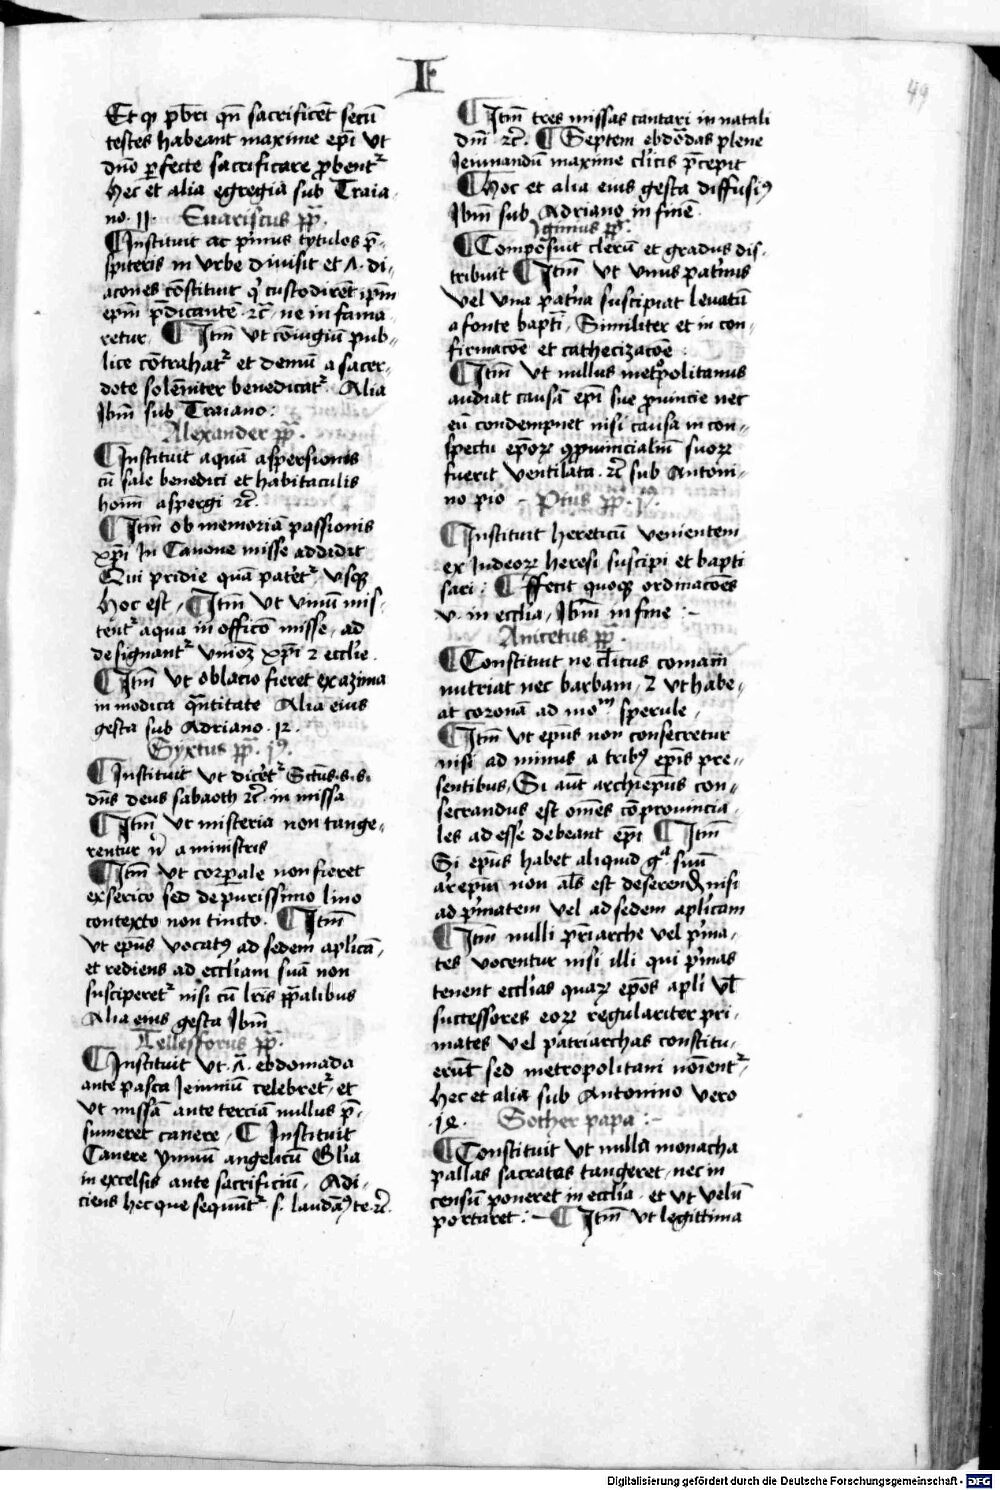 I
49
Et qͥ pb̄ri qn̄ sacrificēt secū
testes habeant maxime ep̄i vt
dn̄o ꝑfecte sacrificare ꝓbentᷣ
hec et alia egregia sub Traia
no. 11. Euaristus pp̄.
¶Instituit ac pͥmus tytulos p̄=
spiteris in vrbe diuisit et ʌ. di=
acones cōstituit qͥ custodirēt ip̄m
ep̄m p̄dicantē ⁊c̄. ne in fama
retur. ¶ Itm̄ vt cōiugiū pub=
lice cōtrahatᷣ et demū a sacer=
dote solēniter benedicatᷣ. Alia
Ibm̄ sub Traiano:
Alexander pp̄.
¶Instituit aquā aspersionis
cū sale benedici et habitaculis
hoim̄ aspergi ⁊c̄.
¶Itm̄ ob memoriā passionis
xp̄i In Canone misse addidit
Qui pridie quā paterētᷣ vsqꝫ
hoc est, ¶Itm̄ vt vinū mis=
centᷣ aqua in officō misse, ad
designantᷣ vnioꝫ xp̄i ⁊ ecclie.
¶Itm̄ vt oblacio fieret ex azima
in modica qͣntitate Alia eius
gesta sub Adriano. 12.
Syxtus pp̄. jꝰ.
¶Instituit vt dicetᷣ Sctūs. s. s.
dn̄s deus sabaoth ⁊c̄. in missa
¶Itm̄ vt misteria non tange=
rentur nͥ a ministris
¶Itm̄ vt corꝑale non fieret
ex serico sed de purissimo lino
contexto non tincto. ¶ Itm̄
vt ep̄us vocatꝰ ad sedem aplicā,
et rediens ad eccliam suā non
susciperetᷣ nisi cū lr̄is pp̄alibus
Alia eius gesta Ibm̄
Tellesforus pp̄.
¶Instituit vt .ʌ̄. ebdomada
ante pasca Ieiuniū celebretᷣ, et
vt missā ante terciā nullus p̄=
sumeret canere, ¶ Instituit
Canere ymnū angelicū Glīa
in excelsis ante sacrificiū, Adi=
ciens hec que sequūtᷣ. s. laudāꝰ te ⁊c̄.
¶Itm̄ tres missas cantari in natali
dn̄i ⁊c̄. ¶Septem ebdōdas plene
Ieiunandū maxime clīcis p̄cepit
¶hoc et alia eius gesta diffusiꝰ
Ibm̄ sub Adriano in fine.
Iginius pp̄.
¶Composuit clerū et gradus dis=
tribuit ¶Itm̄ vt vnus patͥnus
vel vna patͥna suscipiat leuatū
a fonte bapt̄i, Similiter et in con=
firmacōe et cathecizacōe:
¶Itm̄ vt nullus metͦpolitanus
audiat causā ep̄i sue ꝓuincie nec
eū condempnet nisi causa in con=
spectu ep̄oꝝ cōprouincialiū suoꝝ
fuerit ventilata. ⁊c̄ sub Antoni=
no pio – Pius pp̄. jꝰ.
¶Instituit hereticū venientem
ex Iudeoꝝ heresi suscipi et bapti
sari: ¶ffecit quoqꝫ ordinacōes
.v. in ecclīa, Ibm̄ in fine:–
Anicetus pp̄.
¶Constituit ne cl̄icus comam
nutriat nec barbam, ⁊ vt habe=
at coronā ad moᵐ sperule,
¶Itm̄ vt ep̄us non consecretur
nisi ad minus a tribꝰ ep̄is pre=
sentibus, Si aūt archiep̄us con=
secrandus est om̄es cōprouincia=
les ad esse debeant ep̄i ¶Itm̄
Si ep̄us habet aliquid gᵃ suū
arep̄m non al̄s est deferendū nisi
ad pͥmatem vel ad sedem aplicam
¶Itm̄ nulli pr̄iarche vel pͥma=
tes vocentur nisi illi qui pͥmas
tenent ecclīas quaꝝ ep̄os apl̄i vl̄
successores eoꝝ regulariter pri=
mates vel patriarchas constitu=
erūt sed metropolitani noīentᷣ,
hec et alia sub Antonino vero
.je. Sother papa:–
¶Constituit vt nulla monacha
pallas sacratas tangeret, nec in
censū poneret in ecclīa. et vt velū
portaret:– ¶ Itm̄ vt legittima
Digitalisierung gefördert durch die Deutsche Forschungsgemeinschaft - DFG